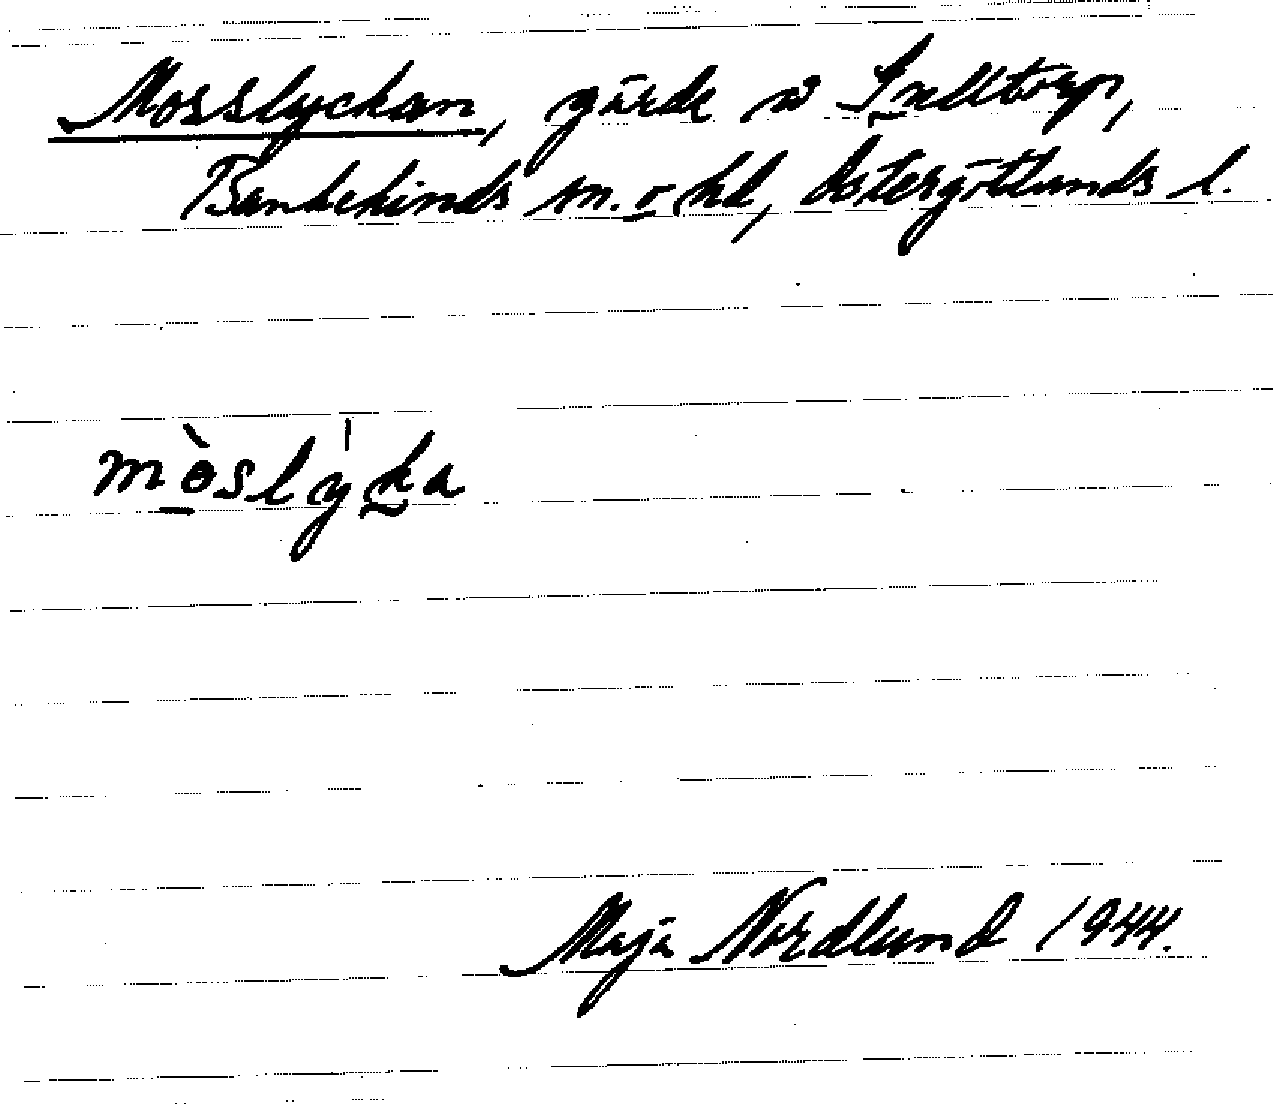 Mosslyckan, gärde v Snelltorp,
Bankekinds sn. o hd, Östergötlands l.
mòslyka
Maja Nordlund 1944.